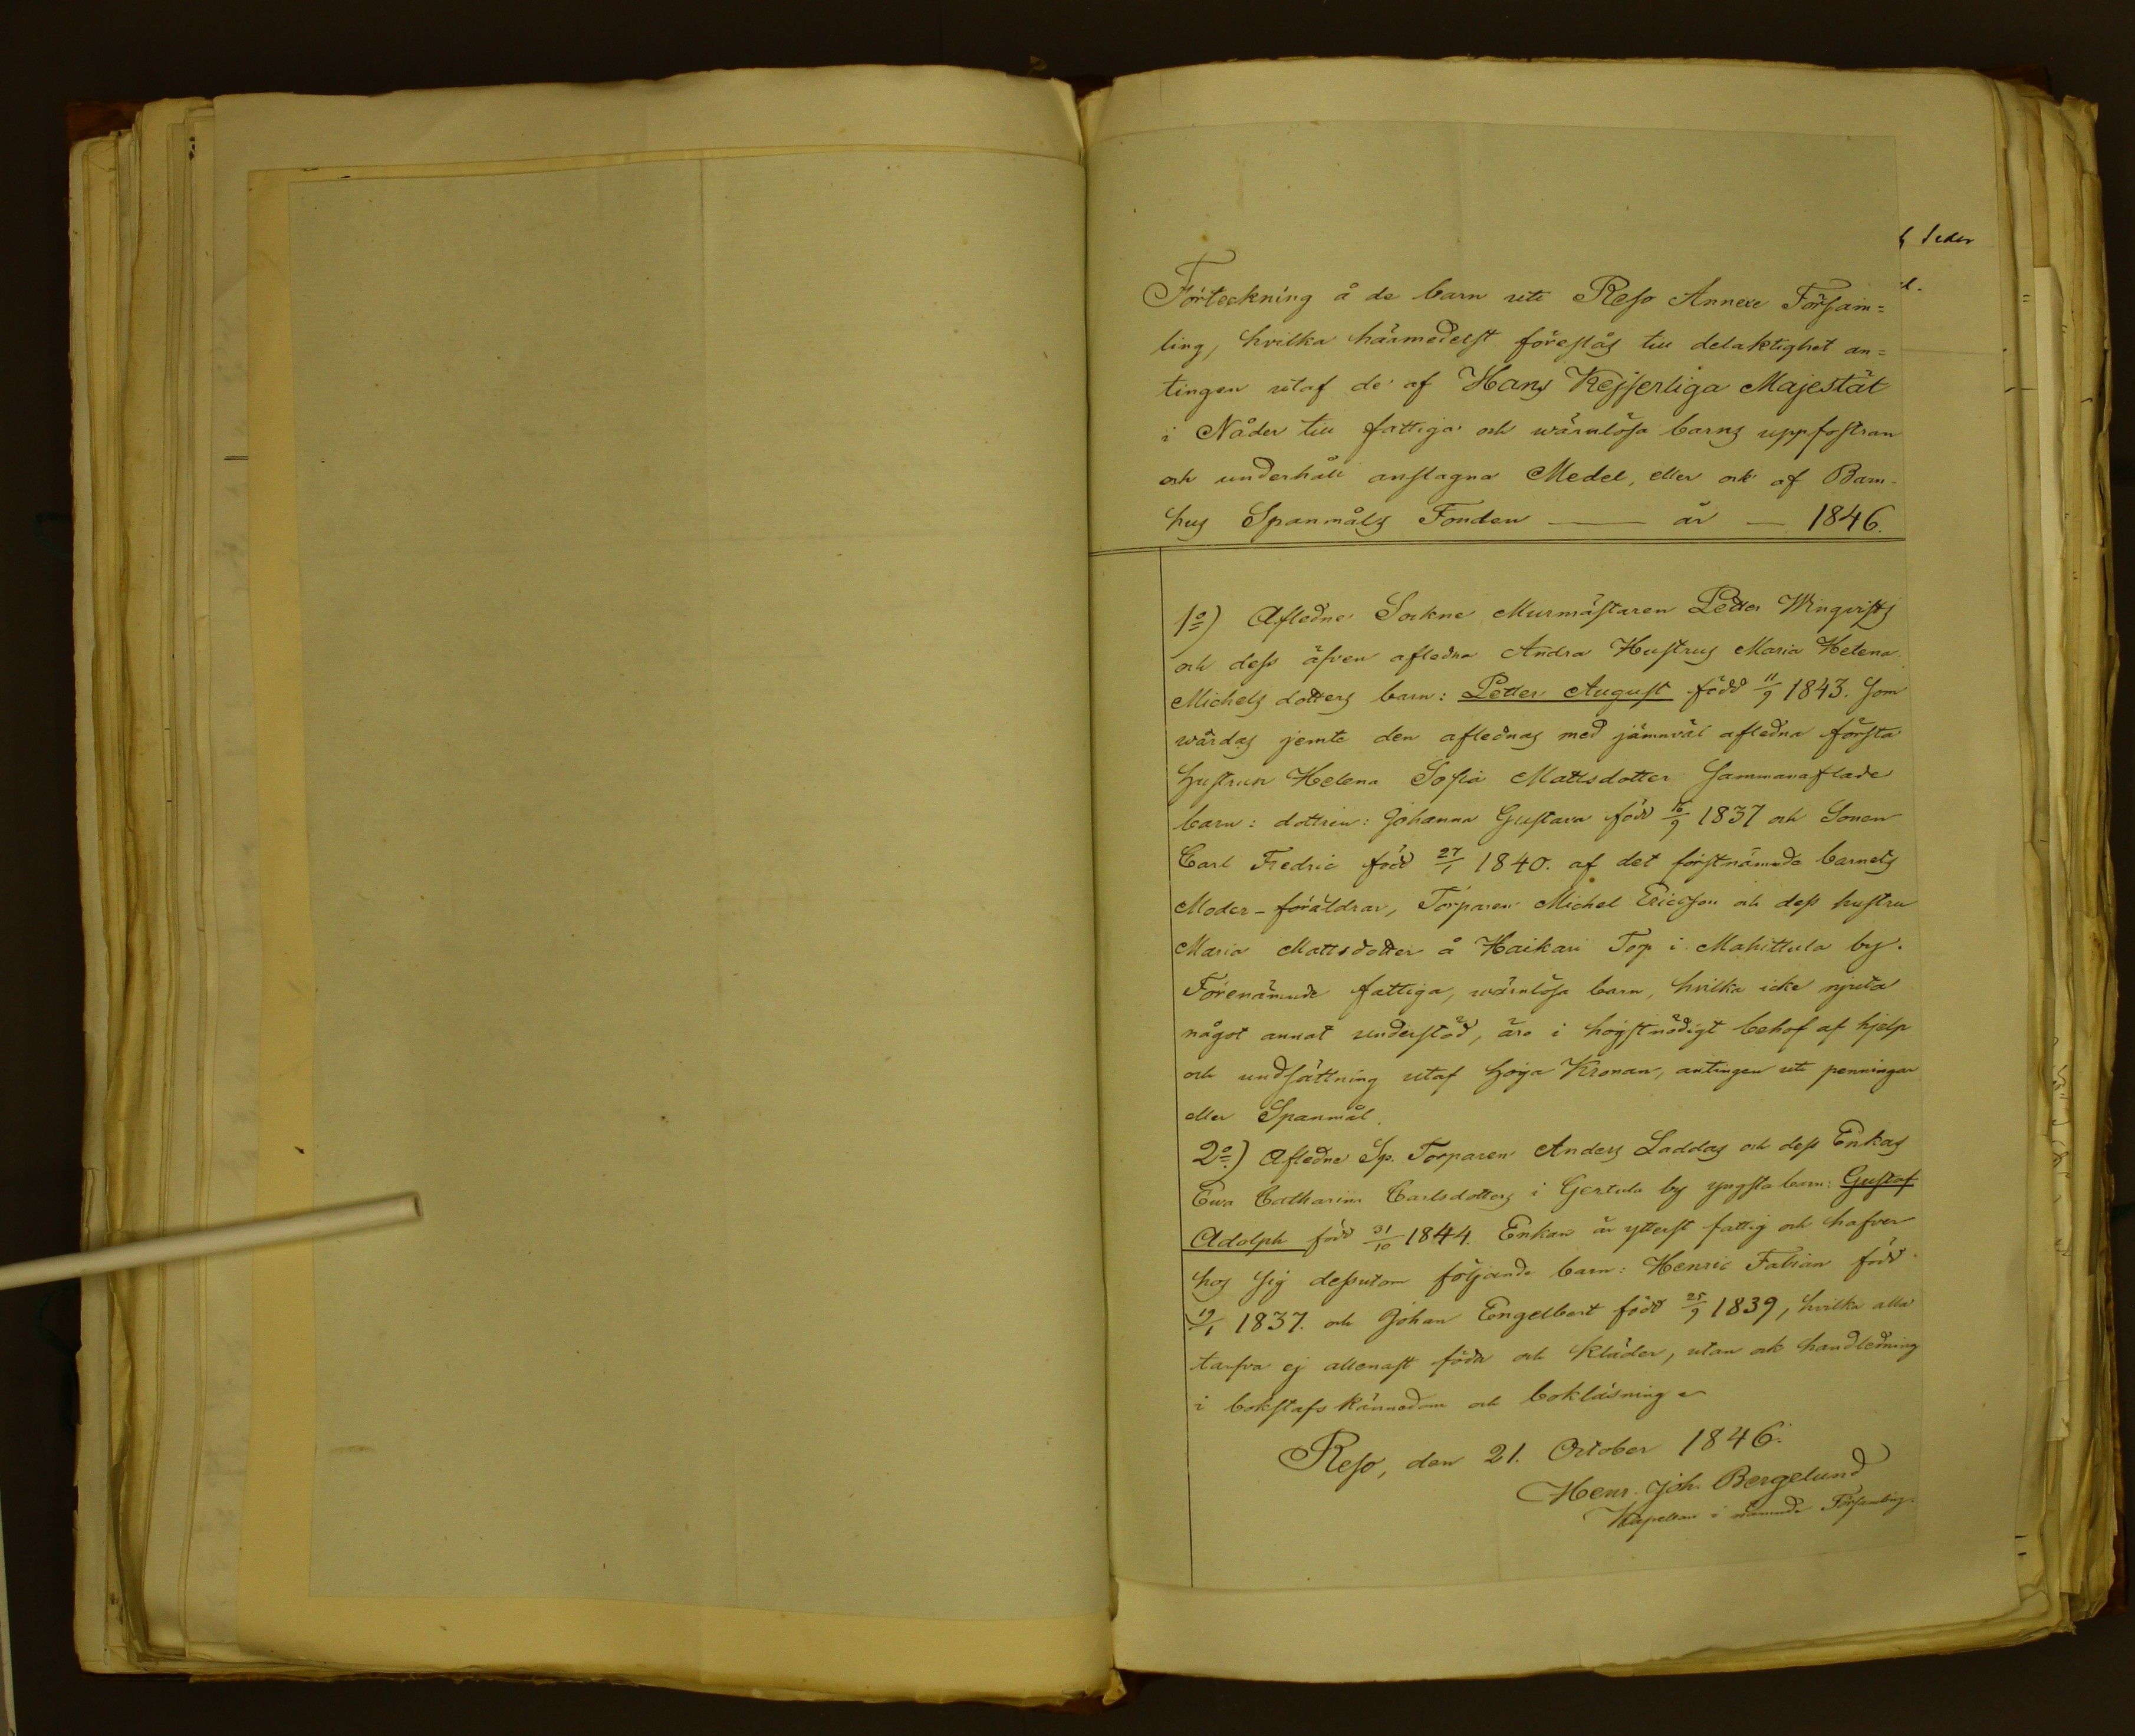 Förteckning å de barn uti Reso Annexe Försam=
ling, hvilka härmedelst föreslås till delaktighet an=
tingen utaf de af Hans Kejserliga Majestät
i Nåder till fattiga och wärnlösa barns uppfostran
och underhåll anslagna Medel, eller ock af Barn-
hus Spanmåls Fonden — år — 1846.
1o) Afledne Sockne Murmästaren Petter Winqvists
och dess äfven aflidna Andra Hustrus Maria Helena
Michels dotters barn: Petter August född 11/9 1843. som
wårdas jemte den aflednas med jämnväl afledna första
hustrun Helena Sofia Mattsdotter sammanaflade
barn: dottren: Johanna Gustava född 16/9 1837 och Sonen
Carl Fredric född 27/1 1840. af det förstnämnde barnets
Moder-föräldrar, Torparen Michel Ericsson och dess hustru
Maria Mattsdotter å Haikari Torp i Mahittula by.
Förenämnde fattiga, wärnlösa barn, hvilka icke njuta
något annat understöd, äro i högstnödigt behof af hjelp
och undsättning utaf höga Kronan, antingen uti penningar
eller Spanmål.
2o.) Afledne Sp. Torparen Anders Laddas och dess Enkas
Ewa Catharina Carlsdotters i Gertula by yngsta barn: Gustaf
Adolph född 31/10 1844. Enkan är ytterst fattig och hafver
hos sig dessutom följande barn: Henric Fabian född
19/1 1837. och Johan Engelbert född 25/9 1839, hvilka alla
tarfva ej allenast föda och kläder, utan ock handledning
i bokstafs kännedom och bokläsning
Reso, den 21. October 1846.
Henr. Joh. Bergelund
Kapellan i nämnde Församling.